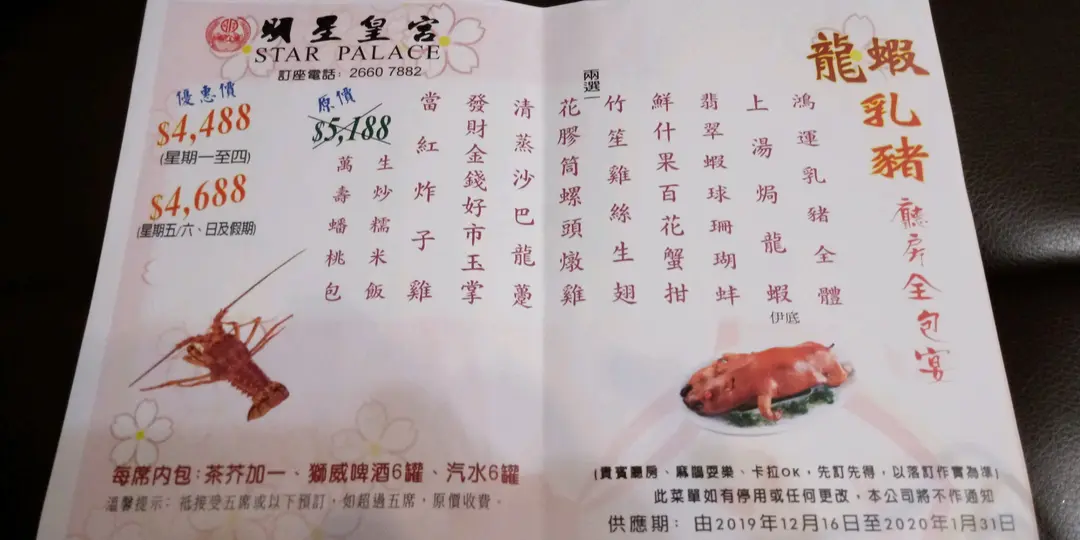 明星皇宮
STAR PALACE
訂座電話: 2660 7882
龍蝦
乳豬
廳房全包宴
鴻運乳豬全體
上湯焗龍蝦
伊底
翡翠蝦球珊瑚蚌
鮮什果百花蟹拑
兩選一
竹笙雞絲生翅
花膠筒螺頭燉雞
清蒸沙巴龍躉
發財金錢好市玉掌
當紅炸子雞
生炒糯米飯
萬壽蟠桃包
原價
$5,188
優惠價
$4,488
(星期一至四)
$4,688
(星期五/六、日及假期)
每席內包:茶芥加一、獅威啤酒6罐、汽水6罐
溫馨提示: 祗接受五席或以下預訂，如超過五席，原價收費。
(貴賓廳房、麻雀耍樂、卡拉OK，先訂先得，以落訂作實為準)
此菜單如有停用或任何更改，本公司將不作通知
供應期: 由2019年12月16日至2020年1月31日